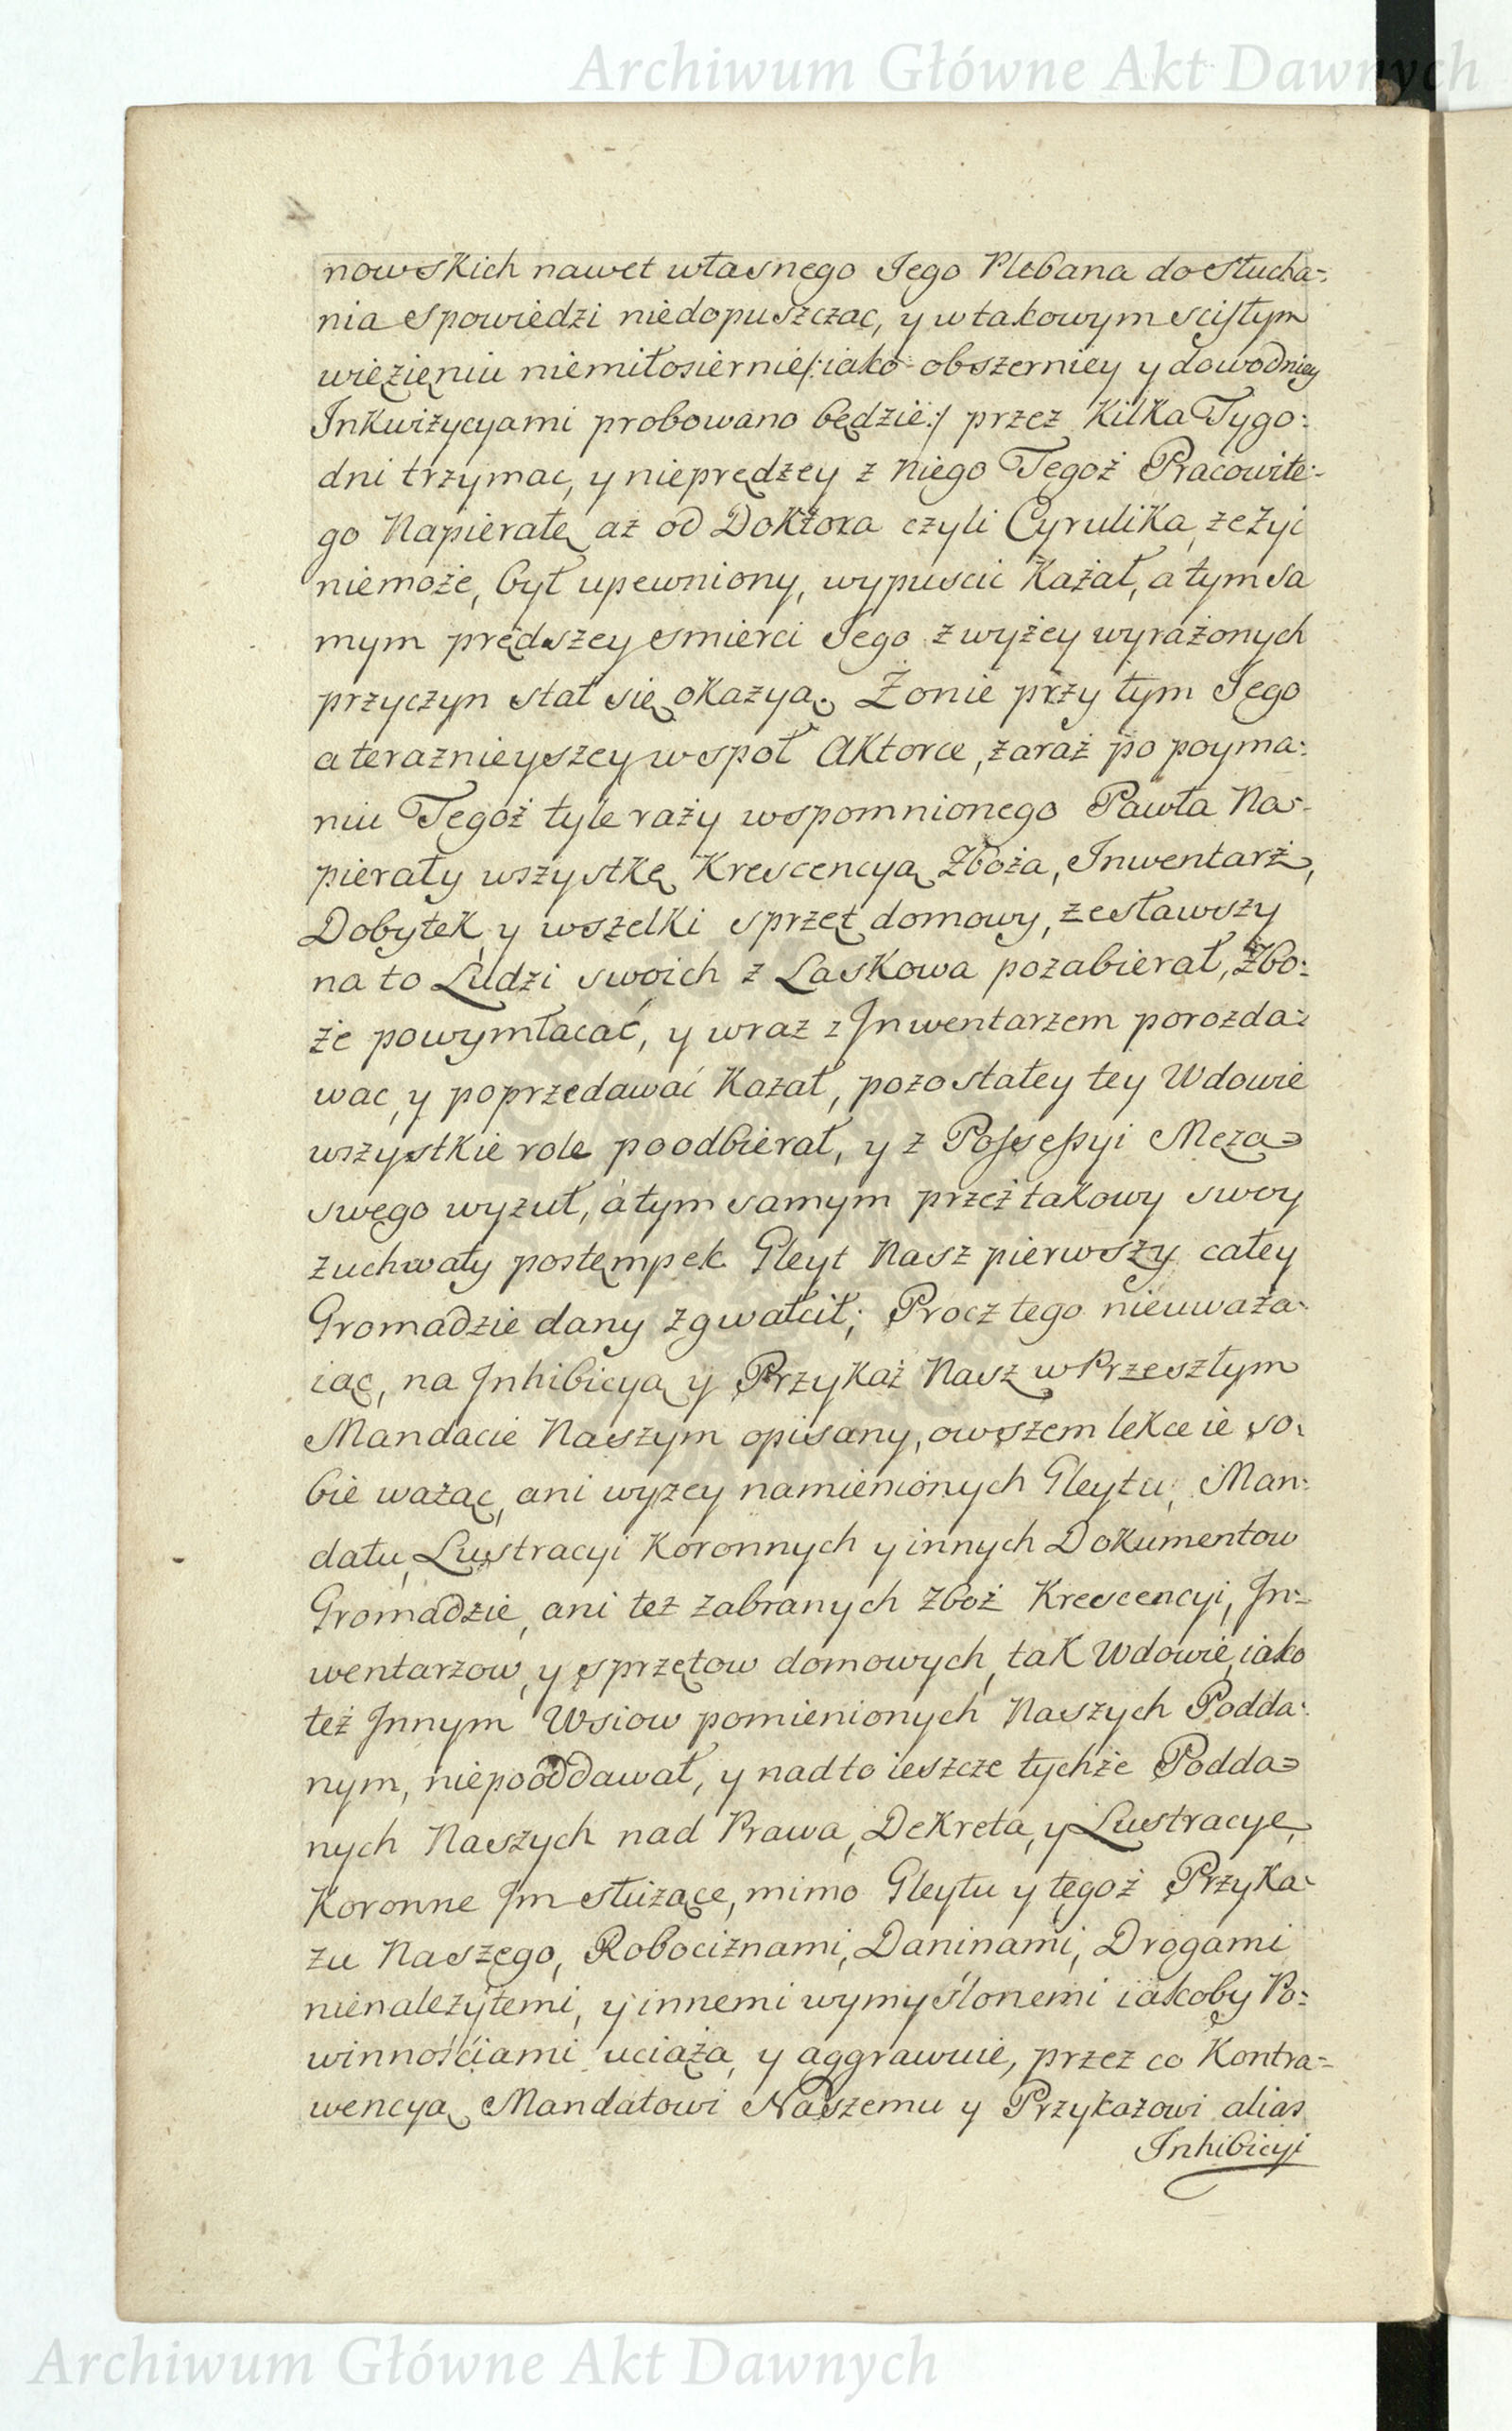 Archiwum Główne Akt Dawnych
nowskich nawet własnego Jego Plebana do słucha=
nia spowiedzi niedopuszczac, y w takowym scisłym
więzięniu niemiłosiernie /: iako obszerniey y dowodniey
Inkwiżycyami probowano będzie :/ przez Kilka Tygo:
dni trzymac, y nieprędzey z niego Tegoż Pracowite=
go Napierałę aż od Doktora czyli Cyrulika, że życ
niemoże, był upewniony, wypuscic Każał, a tym sa
mym prędszey smierci Jego z wyżey wyrażonych
przyczyn stał się okazyą. Żonie przy tym Jego
a teraznieyszey wspoł Aktorce, żaraż po poyma:
niu Tegoż tyle raży wspomnionego Pawła Na=
pierały wszystkę Krescencyą Zboża, Inwentarż,
Dobytek y wszelki sprzęt domowy, zesławszy
na to Ludzi swoich z Laskowa pozabierał, Zbo:
że powymłacać, y wraz z Inwentarzem porozda=
wac, y poprzedawać Kazał, pozostałey tey Wdowie
wszystkie role poodbierał, y z Possessyi Męża=
swego wyzuł, a tym samym przeż takowy swoy
zuchwały postęmpek Gleyt Nasz pierwszy całey
Gromadzie dany zgwałcił; Procz tego nieuważa=
iąc, na Inhibicyą y Przykaż Nasz w Przeszłym
Mandacie Naszym opisany, owszem lekce ie so:
bie ważąc, ani wyzey namienionych Gleytu, Man:
datu, Lustracyi Koronnych y innych Dokumentow
Gromadzie, ani też zabranych Zboż Krescencyi, In=
wentarzow, y sprzętow domowych, tak Wdowie, iako
też Innym Wsiow pomienionych Naszych Podda:
nym, niepooddawał, y nad to ieszcze tychże Podda=
nych Naszych nad Prawa, Dekreta, y Lustracye
Koronne Im służące, mimo Gleytu y tegoż Przyka=
zu Naszego, Robociznami, Daninami, Drogami
nienależytemi, y innemi wymyślonemi iakoby Po=
winnościami uciąża, y aggrawuie, przez co Kontra=
wencyą Mandatowi Naszemu y Przykazowi alias
Inhibicyi
Archiwum Główne Akt Dawnych